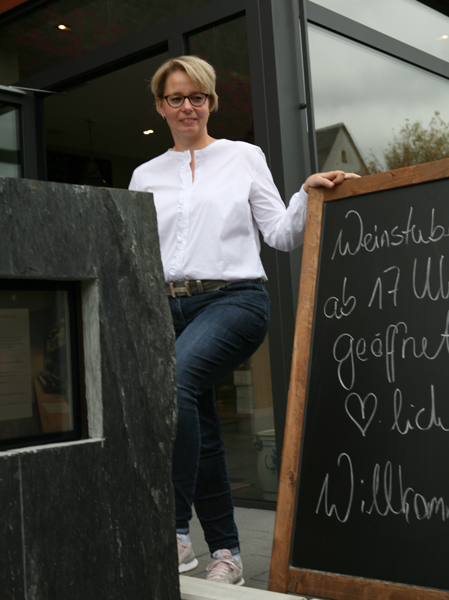 Weinstub
ab 17 Uh
geöffnet
♡ lich
Willkomm